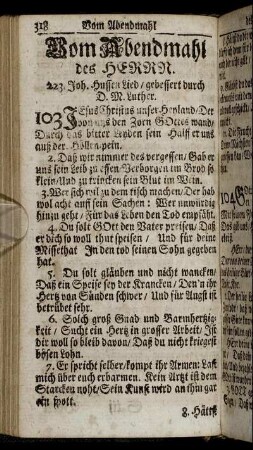 318 Vom Abendmahl
Vom Abendmahl
des HERRN.
223. Joh. Hussen Lied / gebessert durch
D. M. Luther.
103 JEsus Christus unser Heyland / Der
von uns den Zorn GOttes wand /
Durch das bitter Leyden sein Halff er uns
auß der Höllen pein.
2. Daß wir nimmer des vergessen / Gab er
uns sein Leib zu essen Verborgen im Brod so
klein / Und zu trincken sein Blut im Wein.
3. Wer sich wil zu dem tisch machen / Der hab
wol acht auff sein Sachen: Wer unwürdig
hinzu geht / Für das Leben den Tod empfäht.
4. Du solt GOtt den Vater preisen / Daß
er dich so woll thut speisen / Und für deine
Missethat In den tod seinen Sohn gegeben
hat.
5. Du solt gläuben und nicht wancken /
Daß ein Speise sey der Krancken / Den'n ihr
Hertz von Sünden schwer / Und für Angst ist
betrübet sehr.
6. Solch groß Gnad und Barmhertzig-
keit / Sucht ein Hertz in grosser Arbeit / Ist
dir woll so bleib davon / Daß du nicht kriegest
bösen Lohn.
7. Er spricht selber / kompt ihr Armen: Last
mich über euch erbarmen. Kein Artzt ist dem
Starcken noht / Sein Kunst wird an ihm gar
ein spott.
8. Hätts